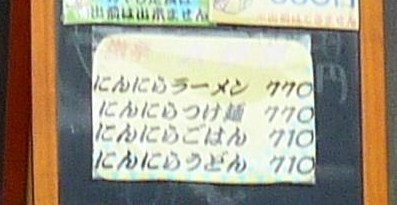 出前は出来ません
にんにらラーメン 770
にんにらつけ麺 770
にんにらごはん 710
にんにらうどん 710